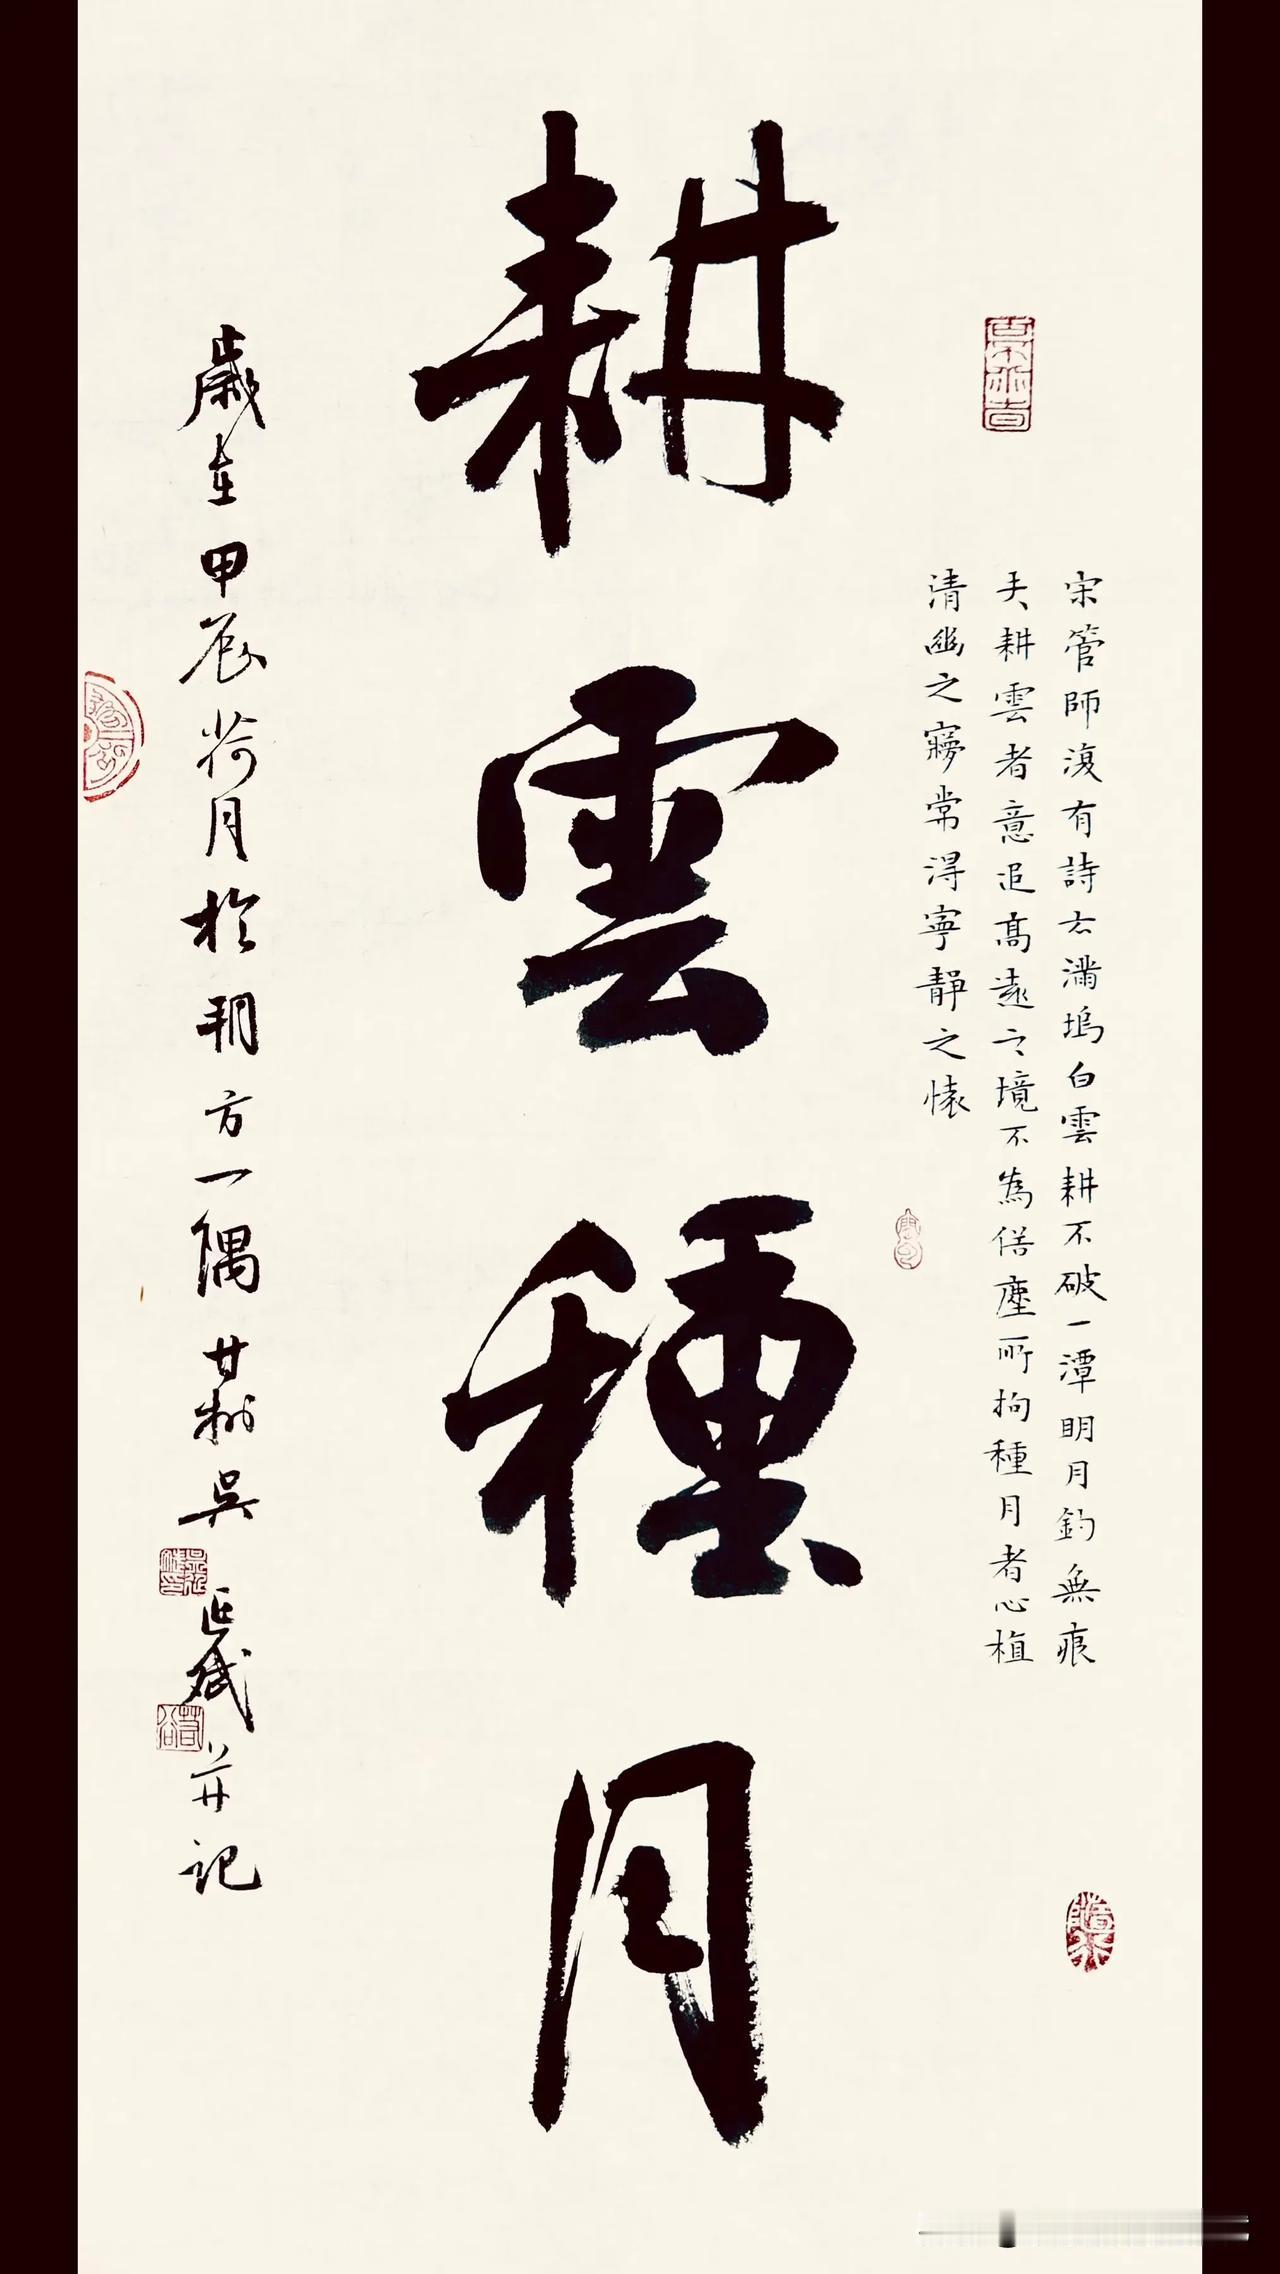 宋管師復有詩云滿塢白雲耕不破一潭明月釣無痕
夫耕雲者意追高遠之境不為俗塵所拘種月者心植
清幽之夢常得寧靜之懷
耕雲種月
歲在甲辰荷月於朔方一隅甘肅吳正斌并記